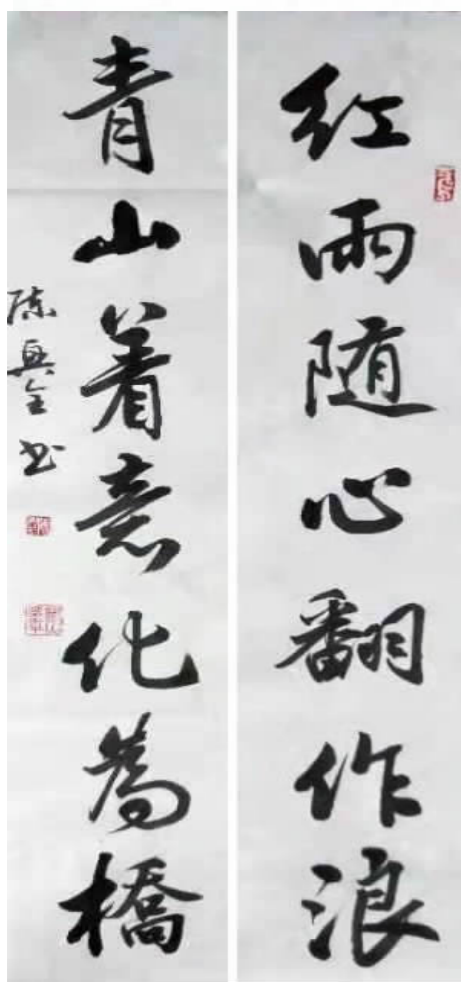 红雨随心翻作浪
青山着意化為橋
陈兴全书